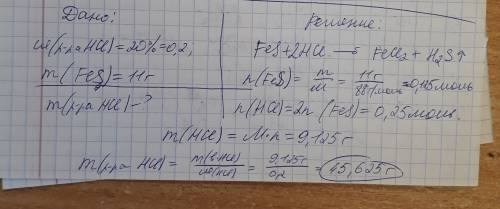 Дано:
ω(р-ра HCl) = 20% = 0,2
m(FeS) = 11г
m(р-ра HCl) - ?
Решение:
FeS + 2HCl → FeCl₂ + H₂S↑
n(FeS) = m/M = 11г/88г/моль = 0,125моль
n(HCl) = 2n(FeS) = 0,25моль.
m(HCl) = M·n = 9,125г
m(р-ра HCl) = m(в HCl)/ω(HCl) = 9,125г/0,2 = 45,625г